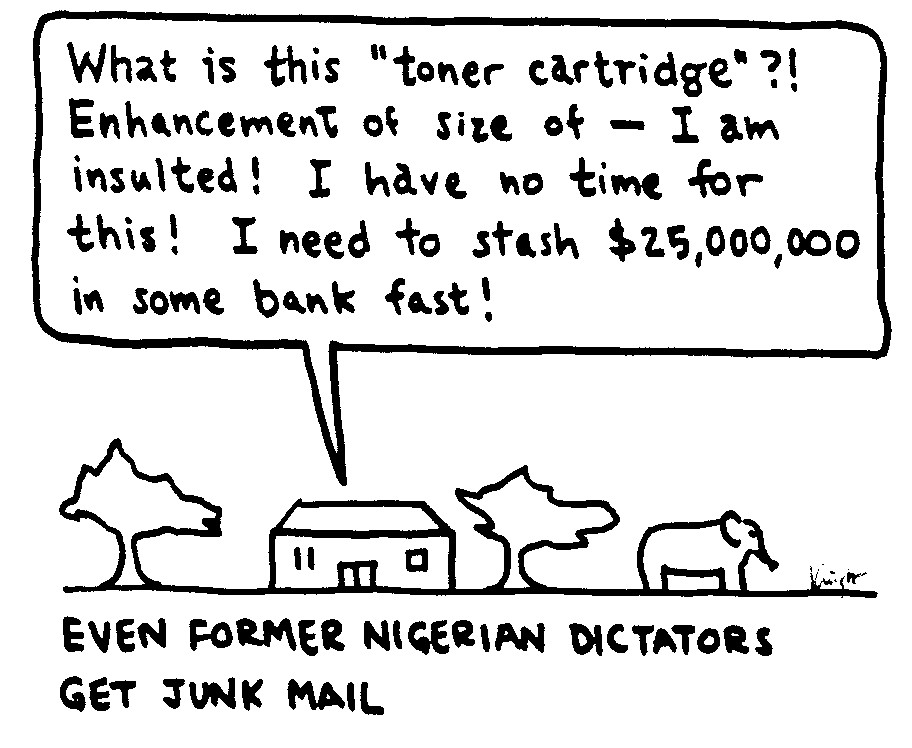 What is this "toner cartridge"?!
Enhancement of size of — I am
insulted! I have no time for
this! I need to stash $25,000,000
in some bank fast!
EVEN FORMER NIGERIAN DICTATORS
GET JUNK MAIL